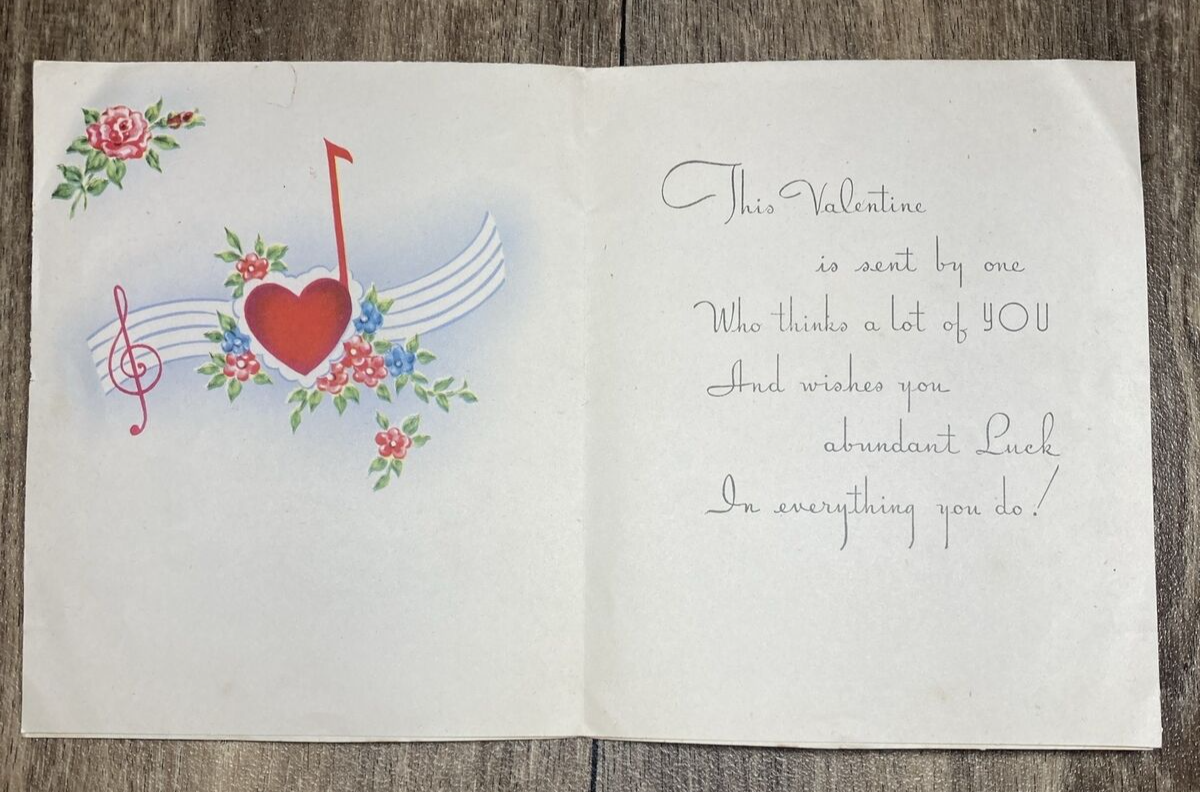 This Valentine
is sent by one
Who thinks a lot of YOU
And wishes you
abundant Luck
In everything you do!